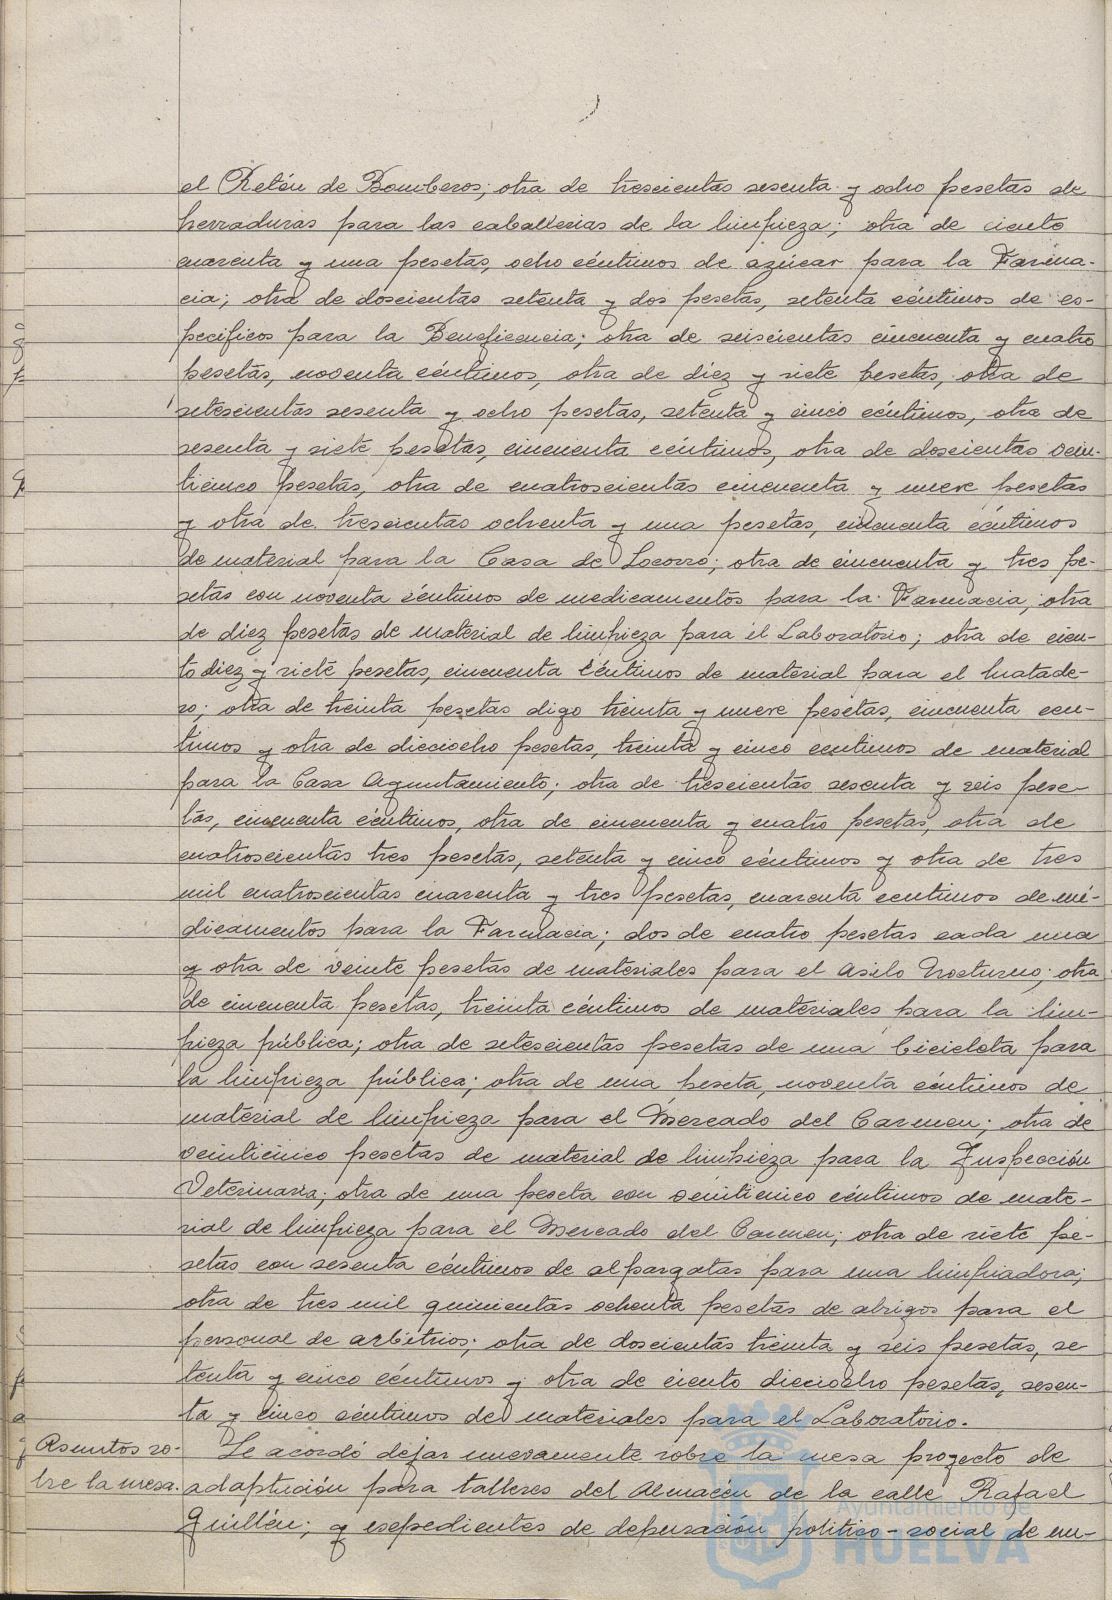 el Retén de Bomberos; otra de trescientas sesenta y ocho pesetas de
herraduras para las caballerias de la limpieza; otra de ciento
cuarenta y una pesetas, ocho céntimos de azúcar para la Farma-
cia; otra de doscientas setenta y dos pesetas, setenta céntimos de es-
pecificos para la Beneficencia; otra de seiscientas cincuenta y cuatro
pesetas, noventa céntimos, otra de diez y siete pesetas, otra de
setescientas sesenta y ocho pesetas, setenta y cinco céntimos, otra de
sesenta y siete pesetas, cincuenta céntimos, otra de doscientas vein-
ticinco pesetas, otra de cuatroscientas cincuenta y nueve pesetas
y otra de trescientas ochenta y una pesetas, cincuenta céntimos
de material para la Casa de Socorro; otra de cincuenta y tres pe-
setas con noventa céntimos de medicamentos para la Farmacia; otra
de diez pesetas de material de limpieza para el Laboratorio; otra de cien-
to diez y siete pesetas, cincuenta céntimos de material para el Matade-
ro; otra de treinta pesetas digo treinta y nueve pesetas, cincuenta cen-
timos y otra de dieciocho pesetas, treinta y cinco centimos de material
para la Casa Ayuntamiento; otra de trescientas sesenta y seis pese-
tas, cincuenta céntimos, otra de cincuenta y cuatro pesetas, otra de
cuatroscientas tres pesetas, setenta y cinco céntimos y otra de tres
mil cuatroscientas cuarenta y tres pesetas, cuarenta centimos de me-
dicamentos para la Farmacia; dos de cuatro pesetas cada una
y otra de veinte pesetas de materiales para el Asilo Nocturno; otra
de cincuenta pesetas, treinta céntimos de materiales para la lim-
pieza pública; otra de setescientas pesetas de una bicicleta para
la limpieza pública; otra de una peseta, noventa céntimos de
material de limpieza para el Mercado del Carmen; otra de
veinticinco pesetas de material de limpieza para la Inspección
Veterinaria; otra de una peseta con veinticinco céntimos de mate-
rial de limpieza para el Mercado del Carmen; otra de siete pe-
setas con sesenta céntimos de alpargatas para una limpiadora;
otra de tres mil quinientas ochenta pesetas de abrigos para el
personal de arbitrios; otra de doscientas treinta y seis pesetas, se
tenta y cinco céntimos y otra de ciento dieciocho pesetas, sesen-
ta y cinco céntimos de materiales para el Laboratorio.
Asuntos so-
bre la mesa.
Se acordó dejar nuevamente sobre la mesa proyecto de
adaptución para talleres del Almacén de la calle Rafael
Guillén; y expedientes de depuración politico-social de em-
Ayuntamiento de
HUELVA